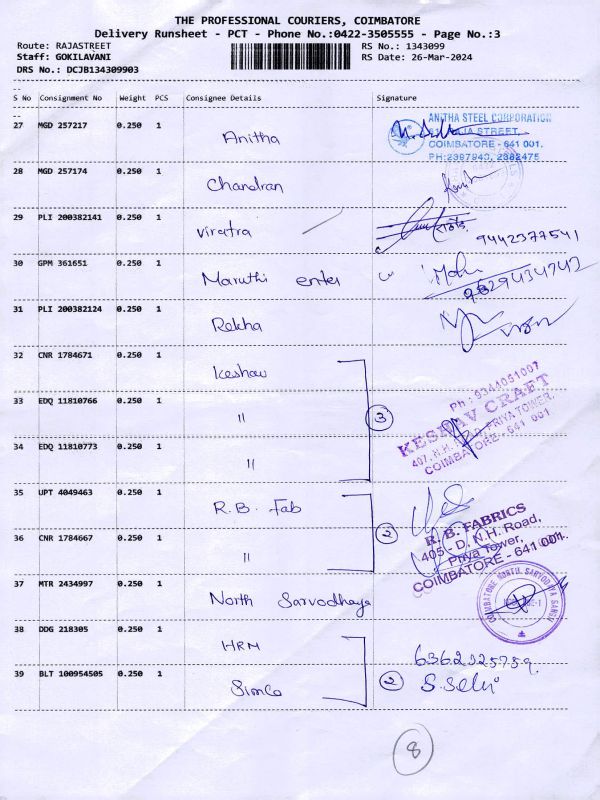 THE PROFESSIONAL COURIERS, COIMBATORE
Delivery Runsheet - PCT - Phone No.:0422-3505555 - Page No.:3
Route: RAJASTREET
RS No.: 1343099
Staff: GOKILAVANI
RS Date: 26-Mar-2024
DRS No.: DCJB134309903
S No Consignment No Weight PCS Consignee Details Signature
27 MGD 257217 0.250 1 Anitha
ANITHA STEEL CORPORATION
RAJA STREET,
COIMBATORE - 641 001.
PH:2397943, 2382475
28 MGD 257174 0.250 1 Chandran
29 PLI 200382141 0.250 1 Viratra
9442377541
30 GPM 361651 0.250 1 Maruthi enter
31 PLI 200382124 0.250 1 Rekha
32 CNR 1784671 0.250 1 Keshav
33 EDQ 11810766 0.250 1 "
3
Ph : 9344051007
KESHAV CRAFT
407, N.H. ROAD, PRIYA TOWER,
COIMBATORE - 641 001
34 EDQ 11810773 0.250 1 "
35 UPT 4049463 0.250 1 R.B. Fab
2
R. B. FABRICS
405 - D, N.H. Road,
Priya Tower,
COIMBATORE - 641 001.
36 CNR 1784667 0.250 1 "
37 MTR 2434997 0.250 1 North Sarvodhaya
COIMBATORE NORTH SARVODAYA SANGH
38 DDG 218305 0.250 1 HRM
39 BLT 100954505 0.250 1 Simco
2
S. Selvi
8